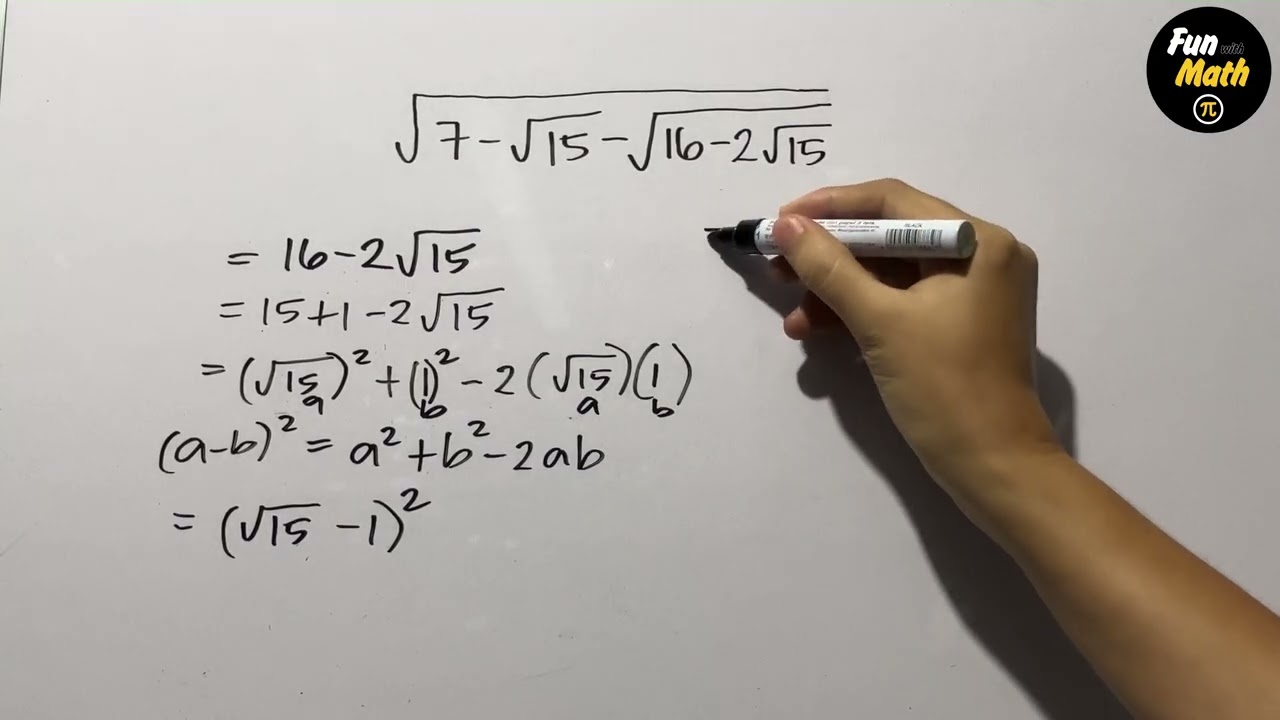 Fun with
Math
π
√(7-√15-√(16-2√15))
= 16-2√15
= 15+1-2√15
= (√15)²+(1)²-2(√15)(1)
a b a b
(a-b)² = a²+b²-2ab
= (√15-1)²
BLACK